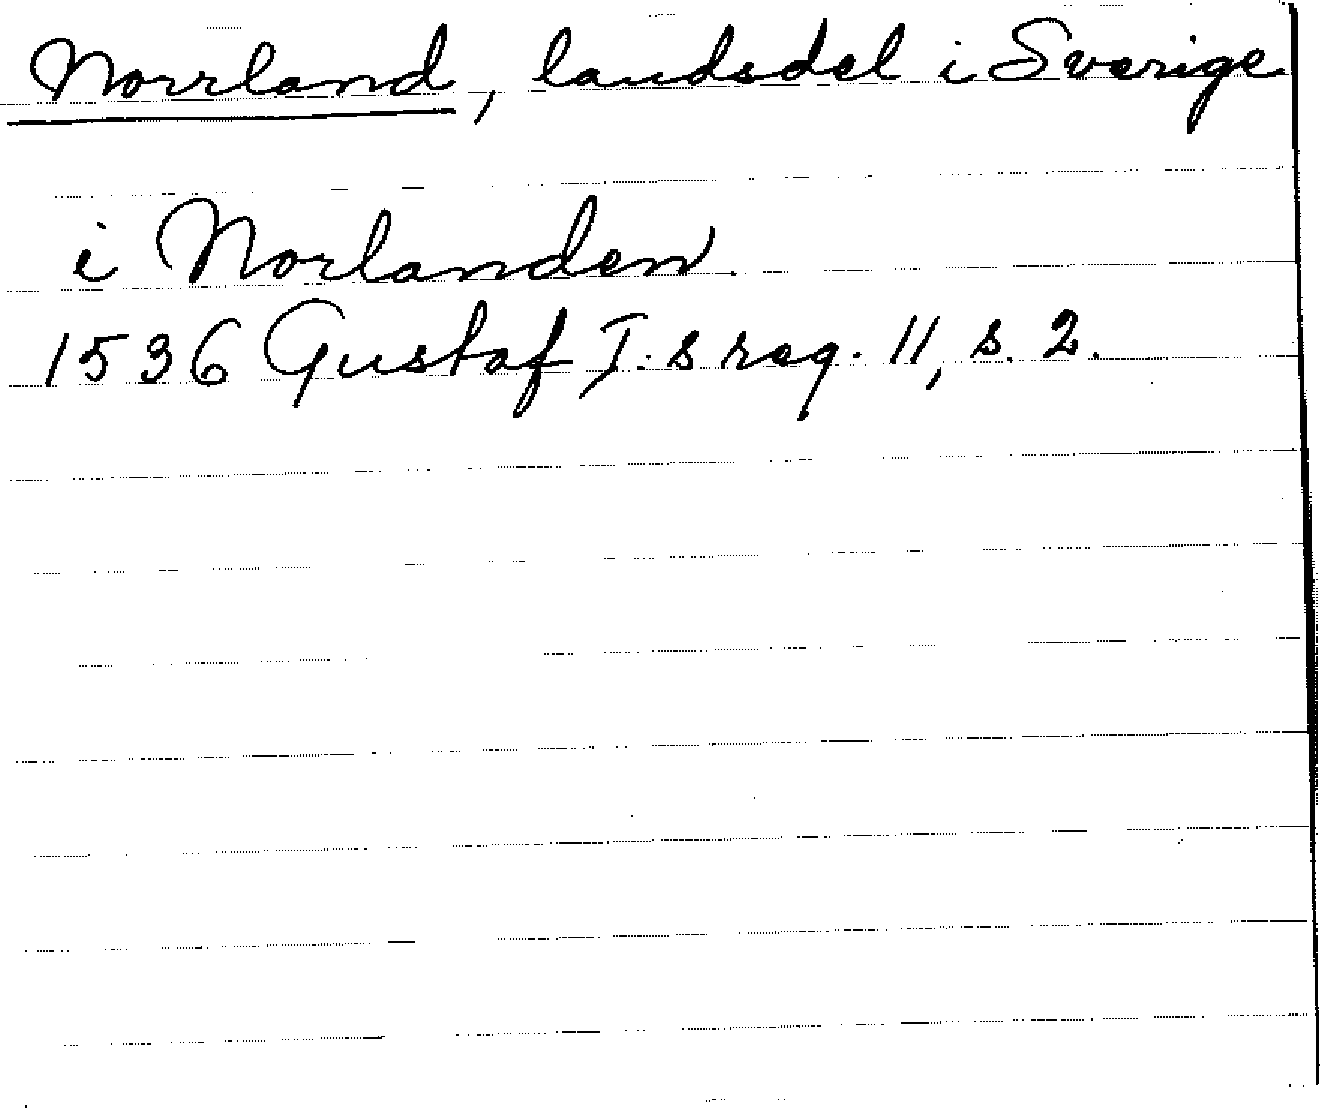 Norrland, landsdel i Sverige
i Norlanden.
1536 Gustaf I:s reg. 11, s. 2.